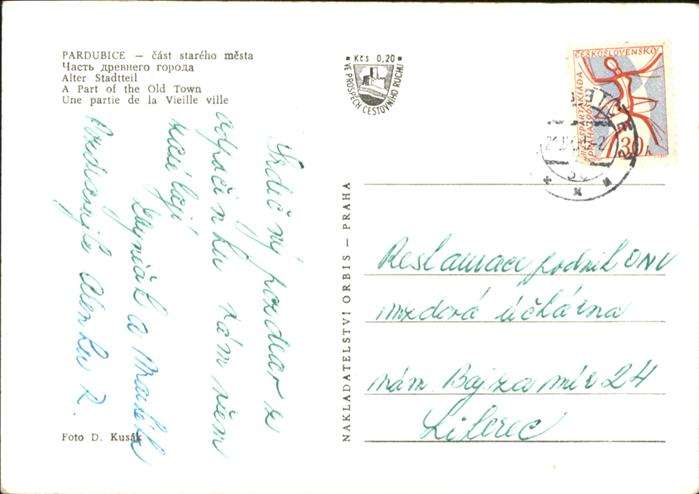 PARDUBICE – část starého města
Часть древнего города
Alter Stadtteil
A Part of the Old Town
Une partie de la Vieille ville
Kčs 0,20
VE PROSPĚCH CESTOVNÍHO RUCHU
ČESKOSLOVENSKO
SPARTAKIÁDA
30 h
Srdečný pozdrav z
odpočinku vám všem
zasílají
a
Pozdravujte Alenku Z.
NAKLADATELSTVÍ ORBIS – PRAHA
Restaurace podnik ONV
mzdová účtárna
nám Boj za mír 24
Liberec
Foto D. Kusák